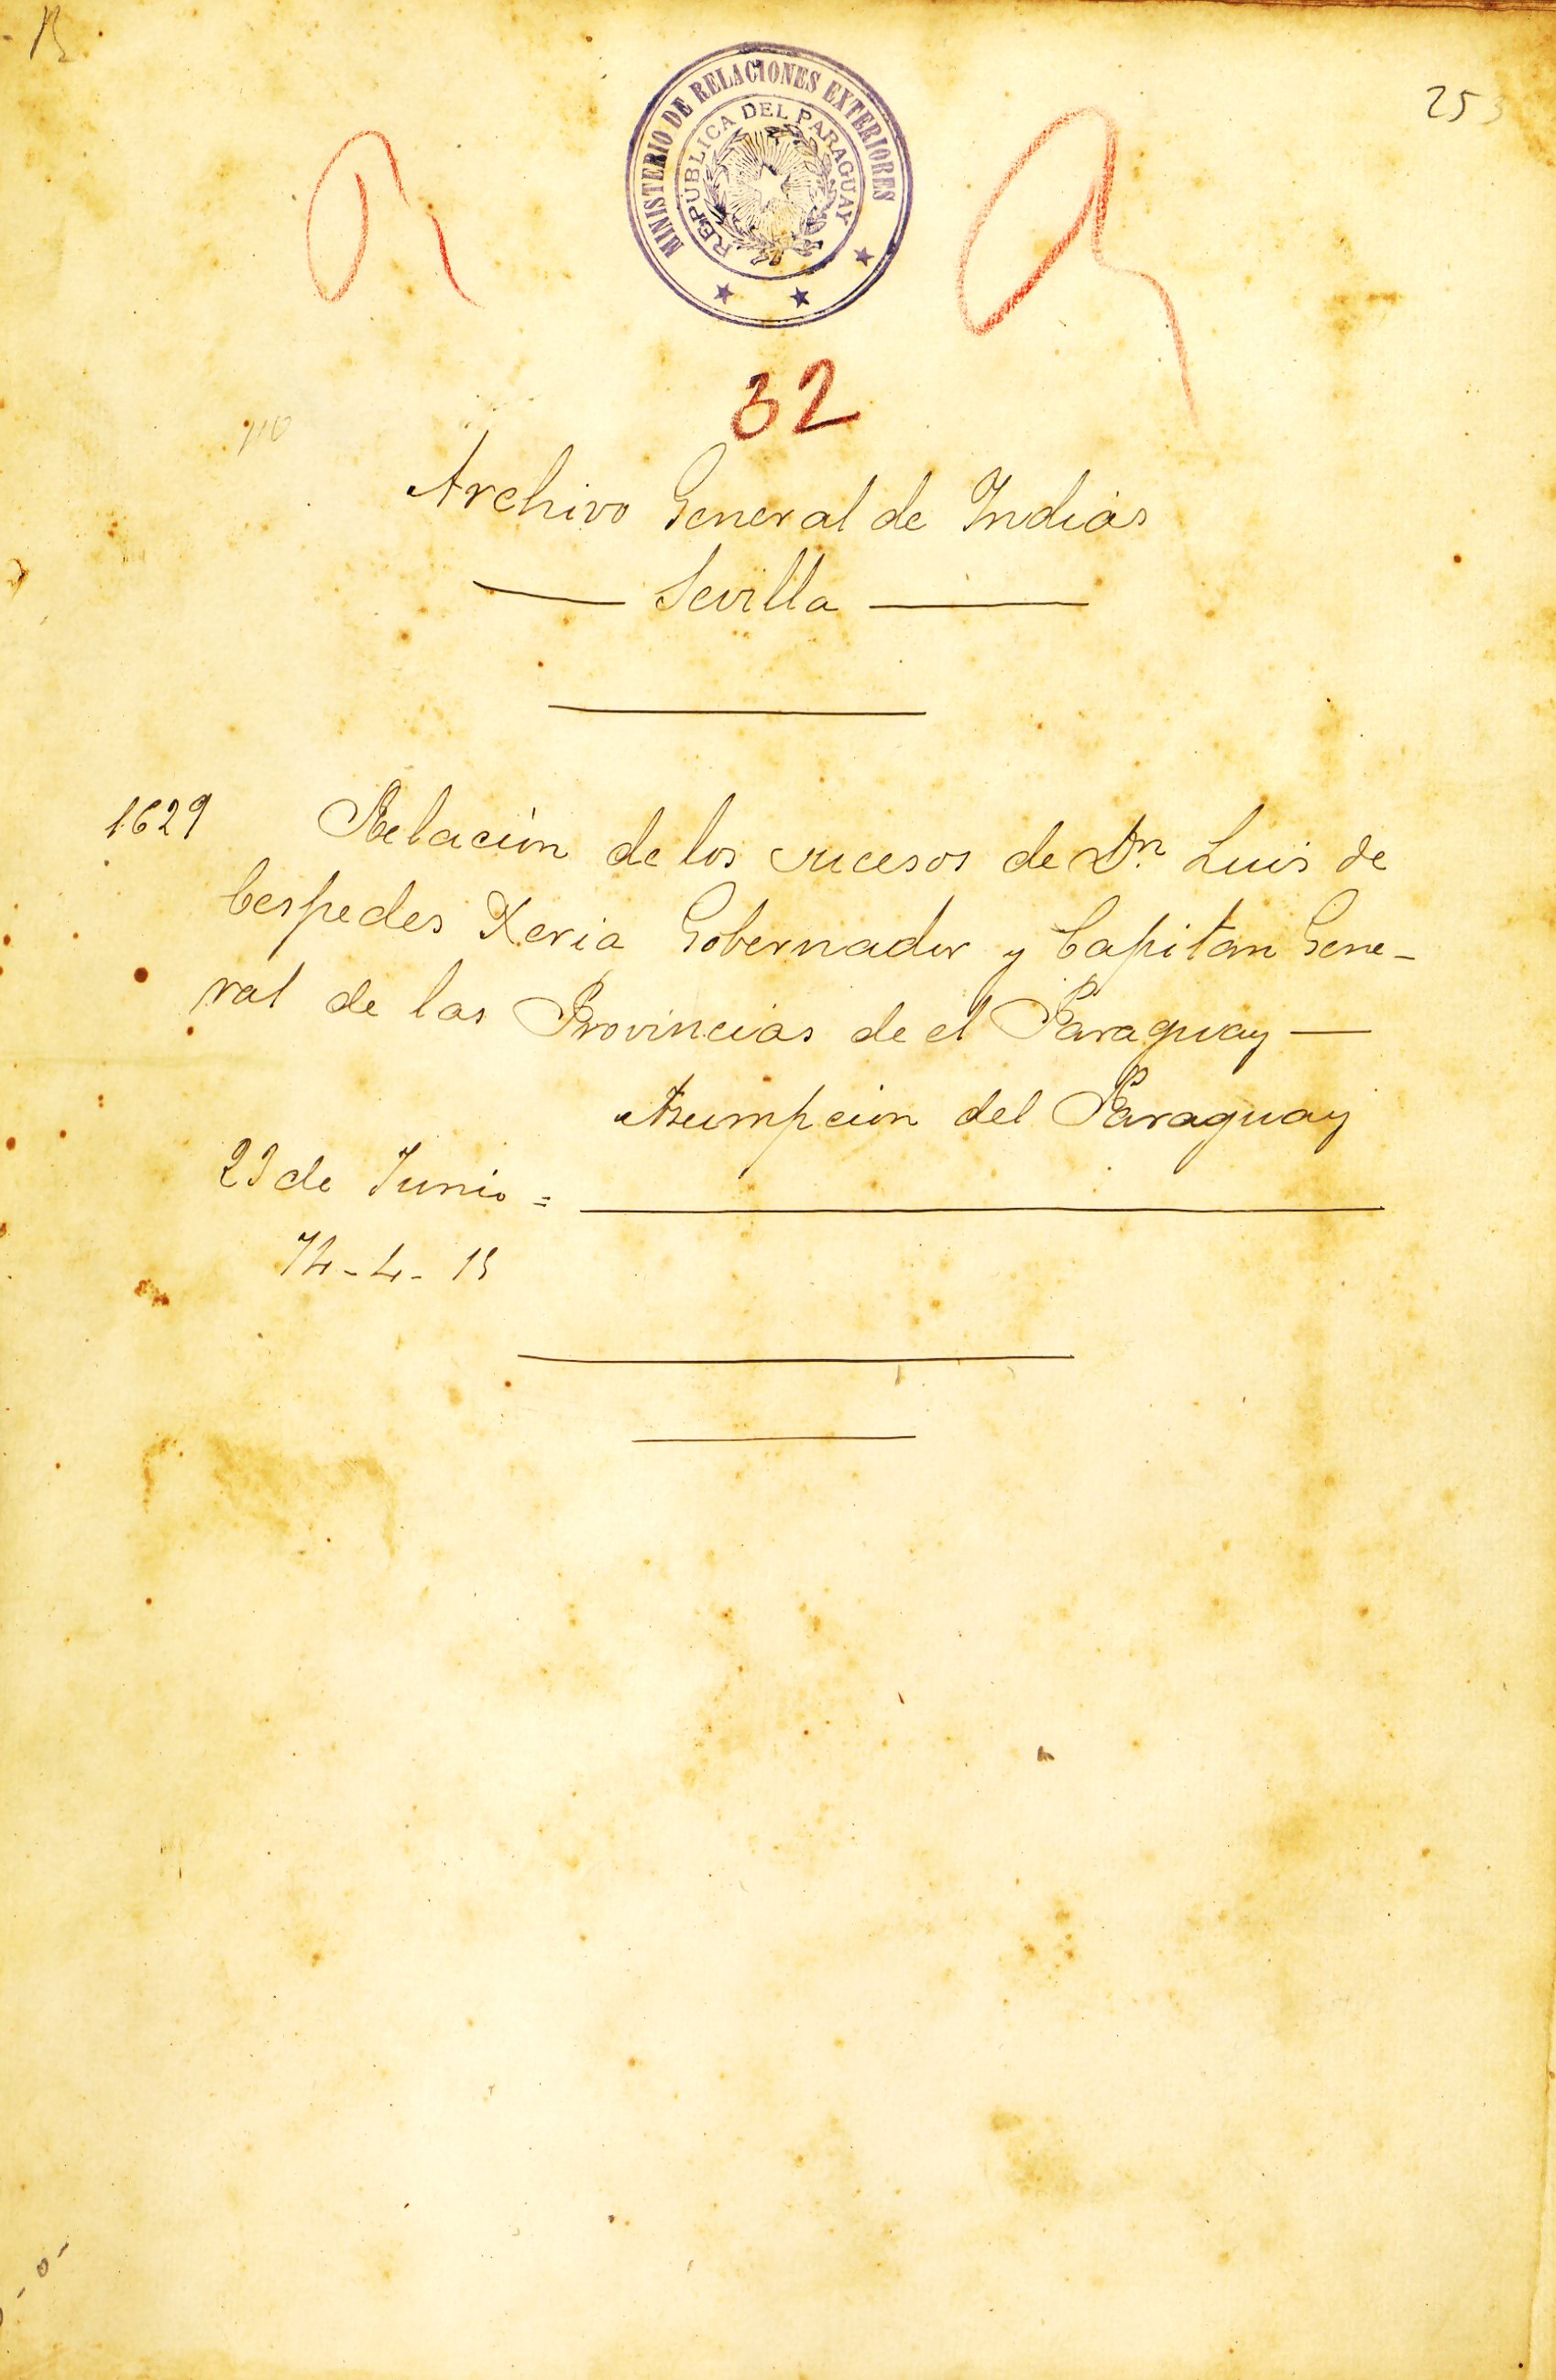 253
MINISTERIO DE RELACIONES EXTERIORES
REPUBLICA DEL PARAGUAY
32
Archivo General de Indias
Sevilla
1629 Relación de los sucesos de Dn. Luis de
Cespedes Xeria Gobernador y Capitan Gene-
ral de las Provincias de el Paraguay
Asumpción del Paraguay
23 de Junio =
74-4-15